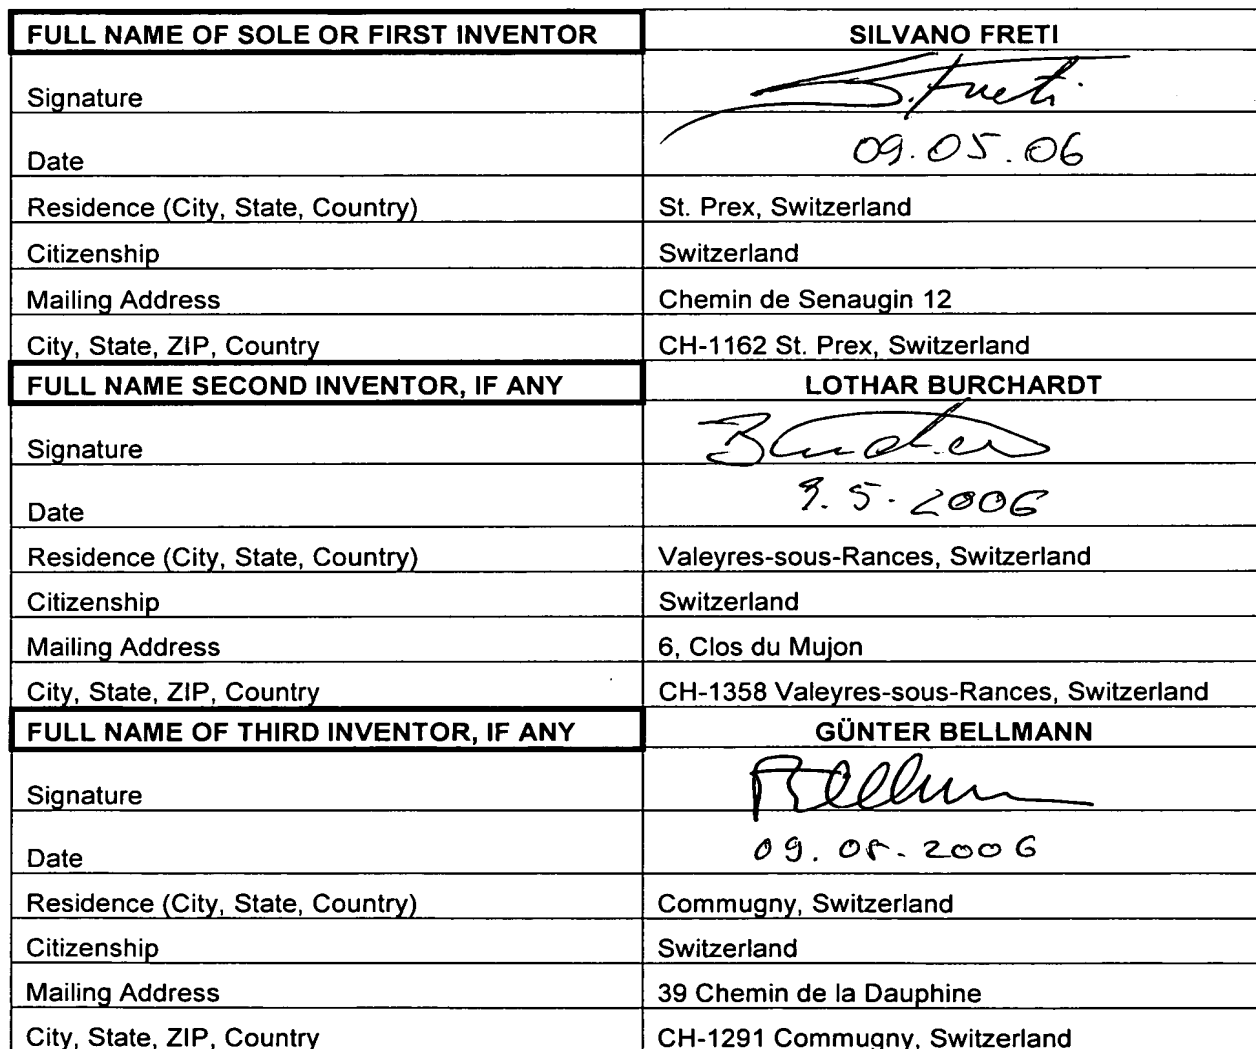 FULL NAME OF SOLE OR FIRST INVENTOR SILVANO FRETI
Signature S. Freti
Date 09.05.06
Residence (City, State, Country) St. Prex, Switzerland
Citizenship Switzerland
Mailing Address Chemin de Senaugin 12
City, State, ZIP, Country CH-1162 St. Prex, Switzerland
FULL NAME SECOND INVENTOR, IF ANY LOTHAR BURCHARDT
Signature
Date 9.5.2006
Residence (City, State, Country) Valeyres-sous-Rances, Switzerland
Citizenship Switzerland
Mailing Address 6, Clos du Mujon
City, State, ZIP, Country CH-1358 Valeyres-sous-Rances, Switzerland
FULL NAME OF THIRD INVENTOR, IF ANY GÜNTER BELLMANN
Signature
Date 09.05.2006
Residence (City, State, Country) Commugny, Switzerland
Citizenship Switzerland
Mailing Address 39 Chemin de la Dauphine
City, State, ZIP, Country CH-1291 Commugny, Switzerland